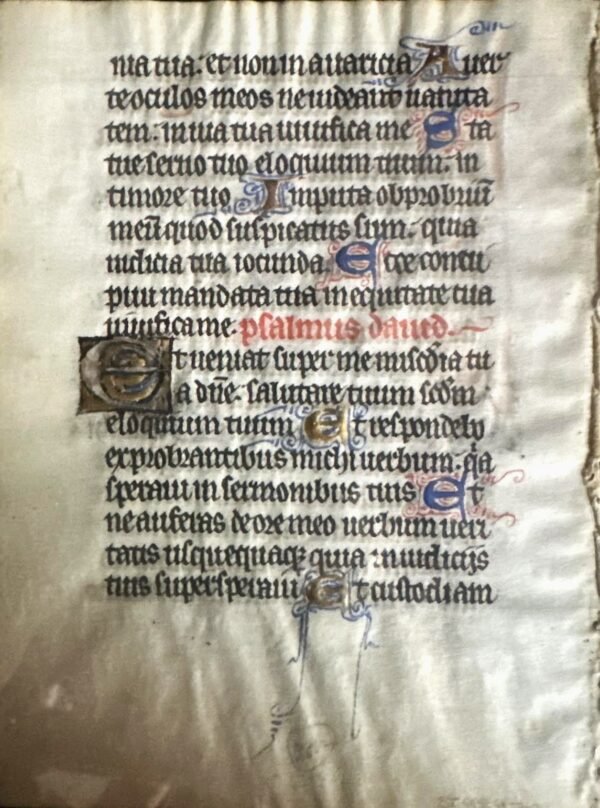 nia tua: et non in avaricia Aver
te oculos meos ne videant vanita
tem: in via tua vivifica me Sta
tue servo tuo eloquium tuum: in
timore tuo Imputa obprobriū
meū quod suspicatus sum: quia
iudicia tua iocunda. Ecce concu
pivi mandata tua in equitate tua
vivifica me. psalmus david.
Et veniat super me misc̄dia tu
a dn̄e: salutare tuum scd̄m
eloquium tuum Et respondebo
exprobrantibus michi verbum: qͥa
speravi in sermonibus tuis Et
ne auferas de ore meo verbum veri
tatis usquequaqꝫ quia in iudicijs
tuis supersperavi Et custodiam